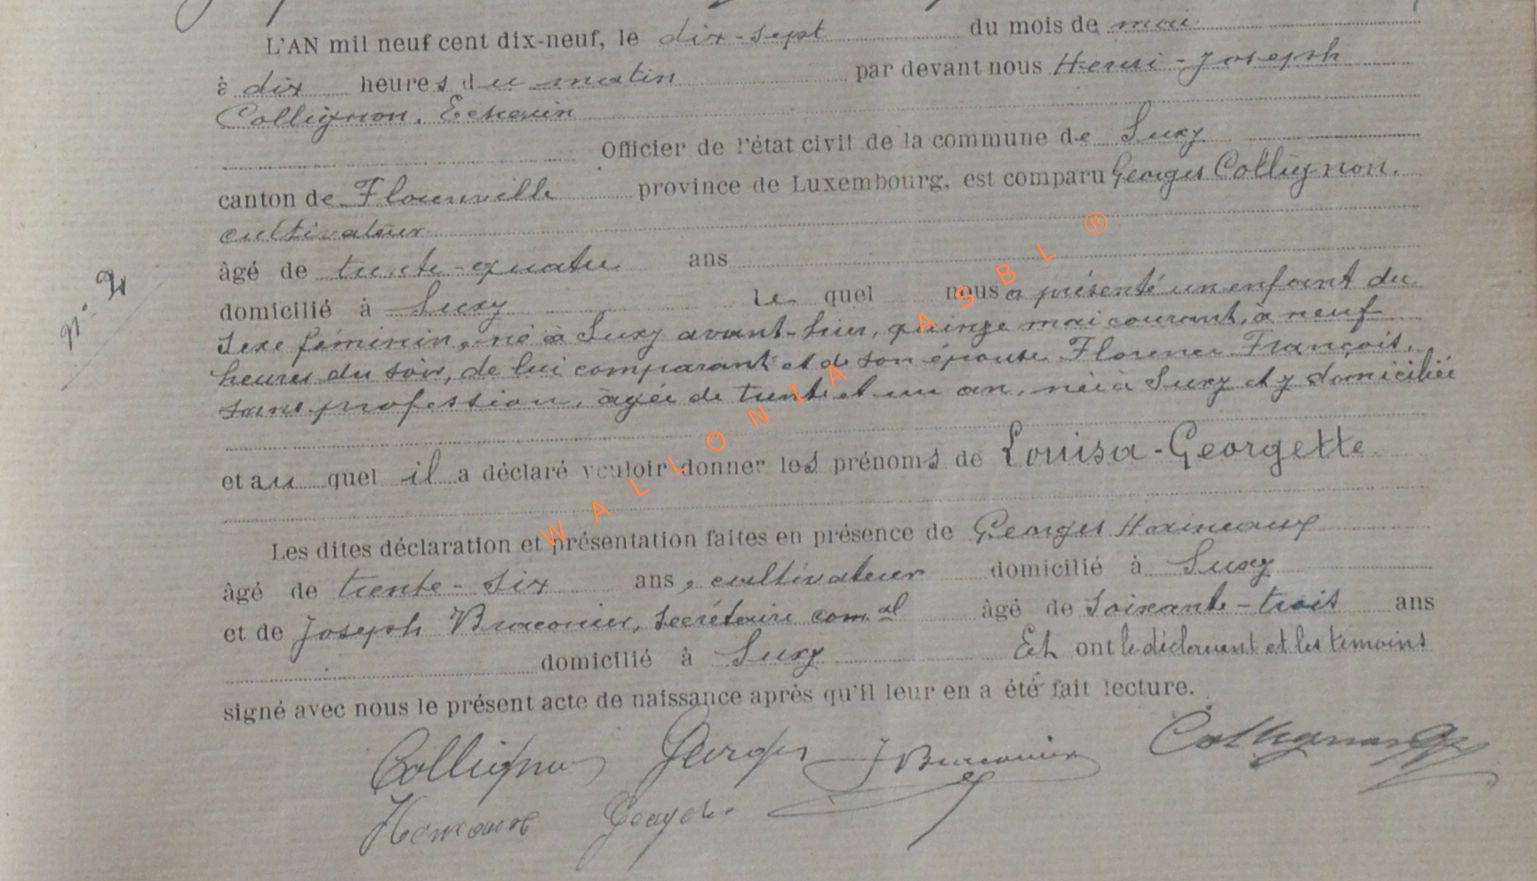 L'AN mil neuf cent dix-neuf, le dix-sept du mois de mai
à dix heures du matin par devant nous Henri-Joseph
Collignon, Echevin
Officier de l'état civil de la commune de Suxy
canton de Florenville province de Luxembourg, est comparu Georges Collignon,
cultivateur
âgé de trente-quatre ans
N° 2
domicilié à Suxy le quel nous a présenté un enfant du
sexe féminin, né à Suxy avant-hier, quinze mai courant, à neuf
heures du soir, de lui comparant et de son épouse Florence François,
sans profession, âgée de trente et un an, née à Suxy et y domiciliée
et au quel il a déclaré vouloir donner les prénoms de Louisa-Georgette
Les dites déclaration et présentation faites en présence de Georges
âgé de trente-six ans, cultivateur domicilié à Suxy
et de Joseph Braconier, secrétaire com.al âgé de soixante-trois ans
domicilié à Suxy Et ont le déclarant et les témoins
signé avec nous le présent acte de naissance après qu'il leur en a été fait lecture.
Collignon Georges J Braconier Collignon
Georges
WALLONIA ASBL ®